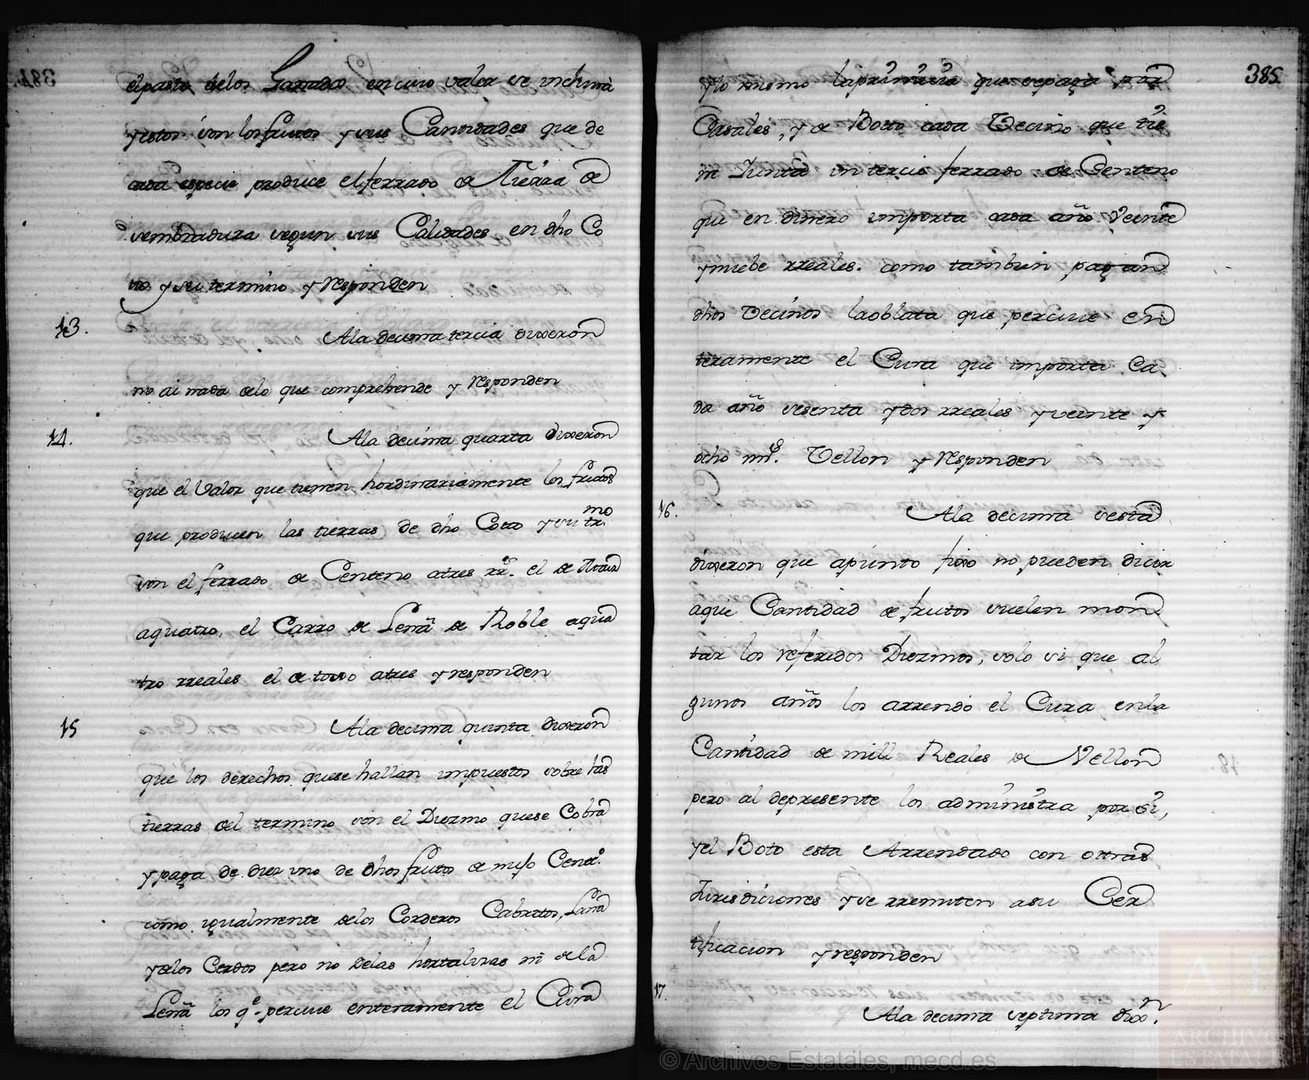 elpasto delos Ganados encuio valor se inchuia
yestos son losfrutos ysus Cantidades que de
cada especie produce elferrado de Tierra de
sembradura segun sus Calidades en dho Co
to ysu termino yresponden
13. Ala decima tercia dixeron
no ai nada delo que comprehende y responden
14. Ala decima quarta dixeron
que el Valor que tienen hordinariamente los frutos
que producen las tierras de dho Coto ysu trmo
son el ferrado de Centeno atres rrs. el de
aquatro, el Carro de Leña de Roble aqua
tro rreales el de toxo atres yresponden
15 Ala decima quinta dixeron
que los derechos quese hallan impuestos sobre las
tierras del termino son el Diezmo quese Cobra
ypaga de diez uno de dhos fruto de mijo Centº
como igualmente delos Corderos Cabritos, Lana
ydelos Cerdos pero no delas hortalizas ni dela
Leña los qe. percive enteramente el Cura
385
ylo mismo laprimicia que sepaga por
Casales, y de Boto cada Vecino que tie
ne Junta un tercio ferrado de Centeno
que en dinero importa cada año veinte
ynuebe rreales. como tambien pagan
dhos Vecinos laoblata que percive en
teramente el Cura que importa Ca
da año sesenta ydos rreales yveinte y
ocho mrs. Vellon y responden
16. Ala decima sesta
dixeron que apunto fixo no pueden dicir
aque Cantidad de frutos suelen mon
tar los referidos Diezmos, solo si que al
gunos años los arrendo el Cura enla
Cantidad de mill Reales de Vellon
pero al depresente los administra por si,
yel Boto esta Arrendado con otras
Jurisdiciones yse rremiten asu Cer
tificacion yresponden
17. Ala decima septima dixn.
© Archivos Estatales, mecd.es
ARCHIVOS
ESTATALES